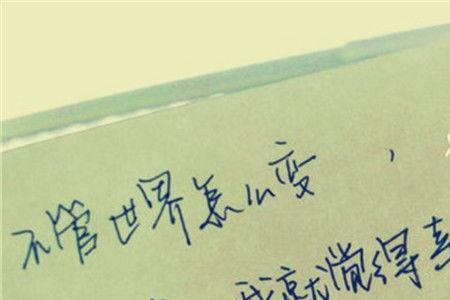 不管世界怎么变，
就觉得